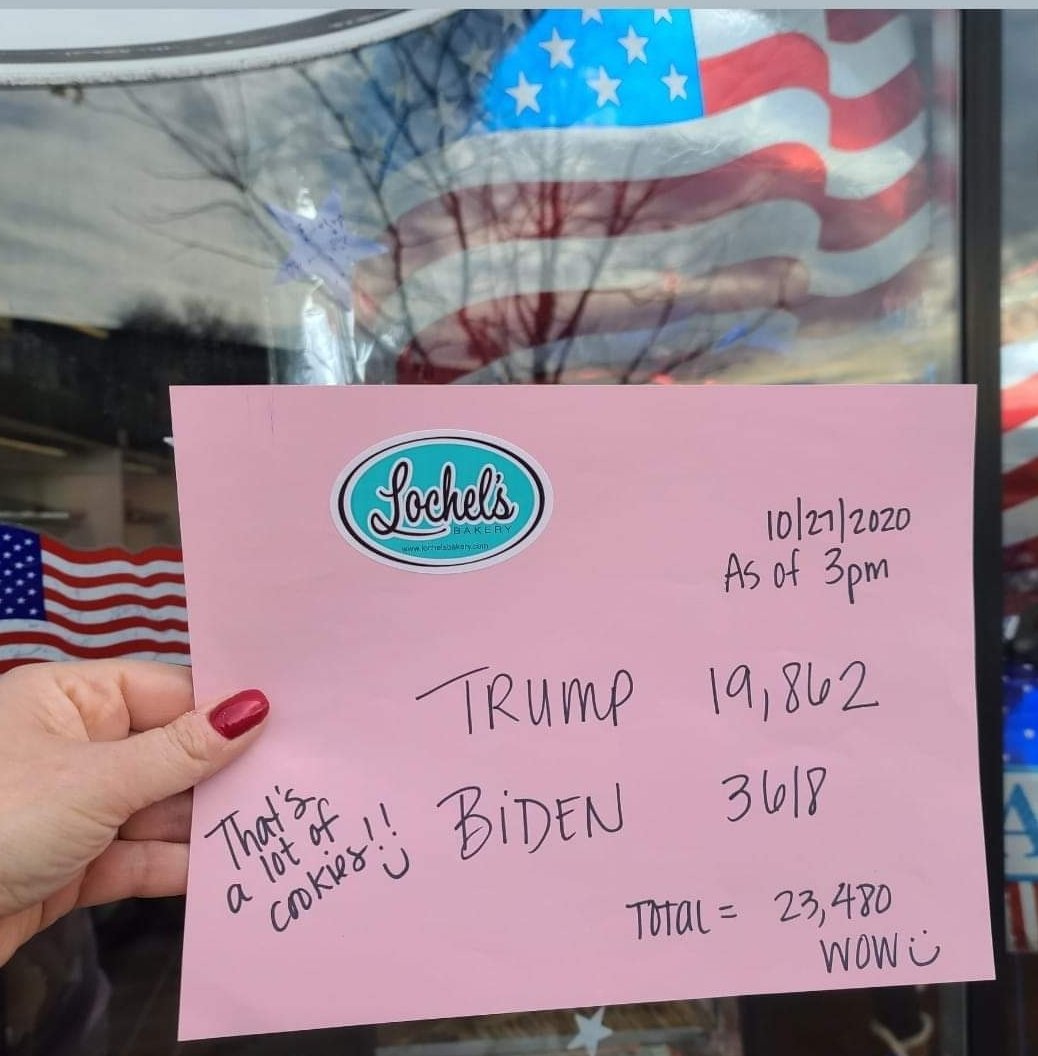 Lochel's
BAKERY
www.lochelsbakery.com
10/27/2020
As of 3pm
TRUMP 19,862
BiDEN 3618
That's
a lot of
cookies!!
TOTAL = 23,480
WOW
A